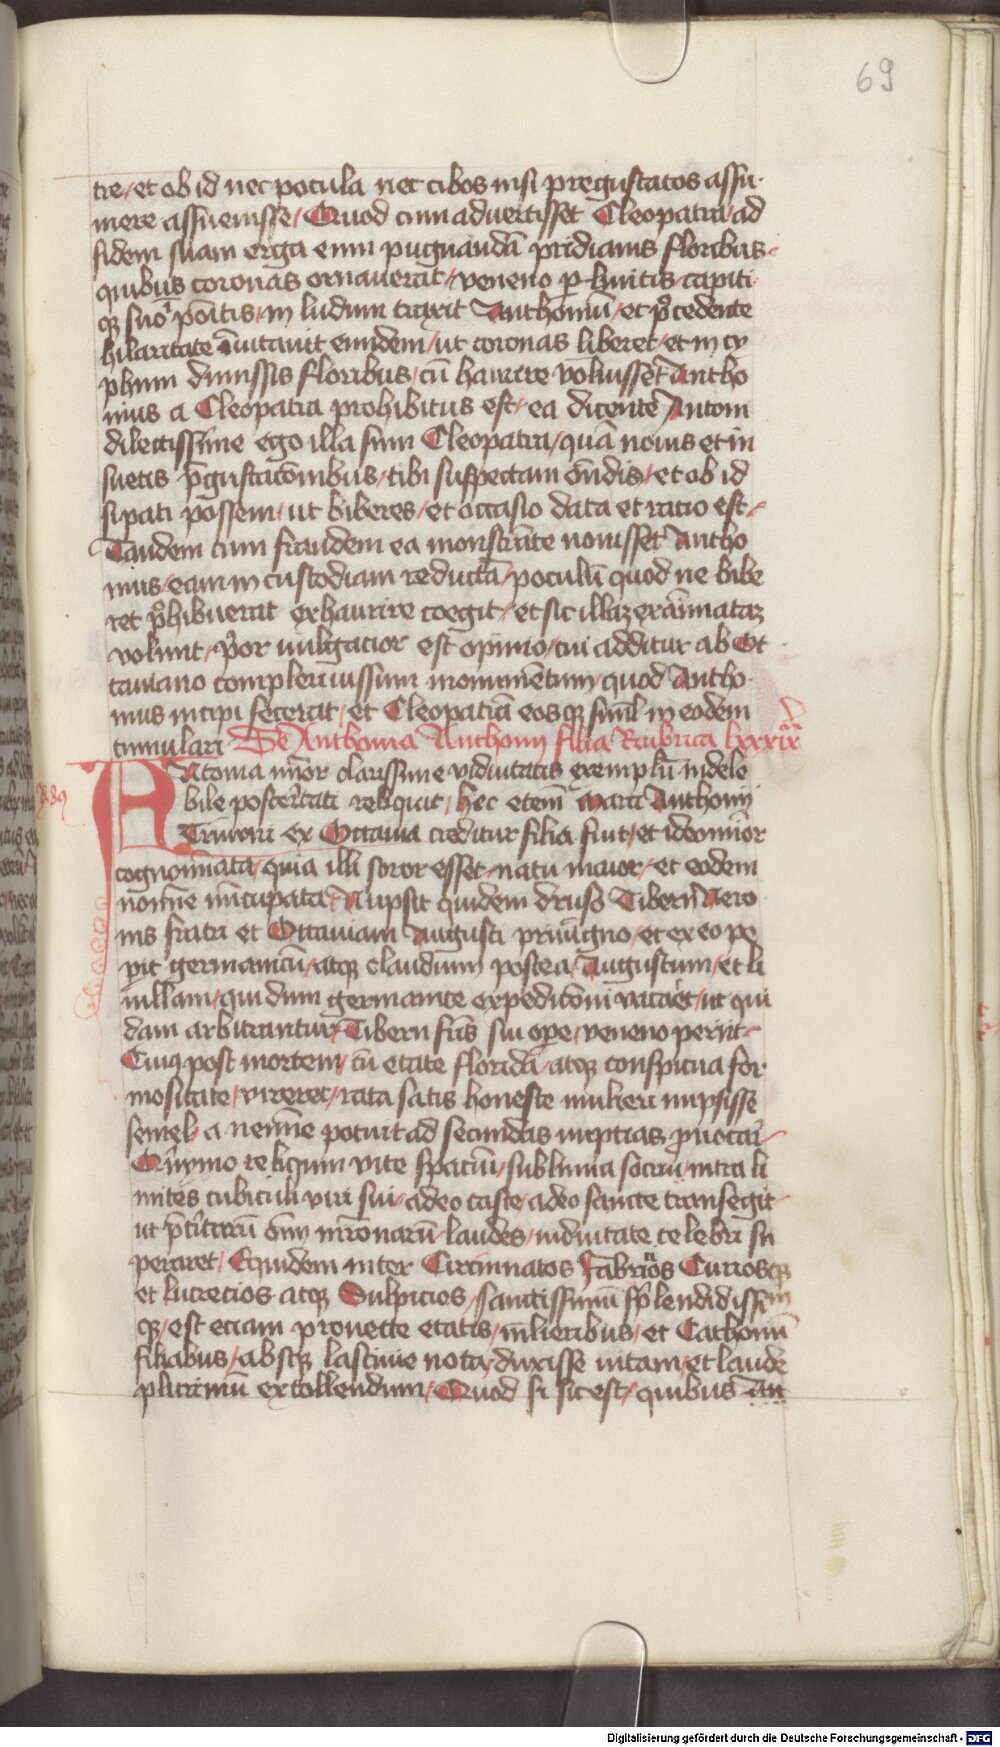 69
tre / et ob id nec pocula nec cibos nisi pregustatos assu-
mere assuevisse / Quod cum advertisset Cleopatra / ad
fidem suam erga eum pugnandā pridianis floribus
quibus coronas ornaverat / veneno
qꝫ suoꝝ in ludum traxit Anthoniū / et p̄cedente
hilaritate īvitavit eundem / ut coronas liberet / et in cy
phum dimissis floribus / cū haurire voluisset Antho
nius a Cleopatra prohibitus est / ea dicente Antoni
dilectissime ego illa sum Cleopatra / quā novis et in
suetis p̄gustacōnibus / tibi suspectam ōndis / et ob id
si pati possem / ut biberes / et occasio data et racio est /
Tandem cum fraudem ea monstrāte novisset Antho
nius / eam in custodiam reductā / poculū quod ne bibe
ret p̄hibuerat exhaurire coegit / et sic illaꝫ exāimataꝫ
volunt / p̄or vulgacior est opinio / cui additur ab Oc
taviano compleri iussum monumētum / quod Antho
nius incipi fecerat / et Cleopatrā eosqꝫ simł in eodem
tumulari De Anthonia Anthonij filia Rubrica lxxxix
Antonia mīor clarissime viduitatis exemplū indele
bile posteritati reliquit / hec etem̄ Marci Anthonij
Triūviri ex Octavia creditur filia fuit / et ideo mīor
cognoīnata / quia illi soror esset natu maior / et eodem
nomīe nūcupata / Nupsit quidem druso Tiberij Nero
nis fratri et Octaviani Augusti privigno / et ex eo pe
pit germanicū / atqꝫ claudium postea Augustum / et li
iullam / qui dum germanice expedicōni vacāet / ut qui
dam arbitrantur / Tiberij frīs sui ope / veneno perijt /
Cuiꝰ post mortem / cū etate floridā / atqꝫ conspicua for
mositate / vireret / rata satis honeste mulieri nupsisse
semel / a nemīe potuit ad secundas nuptias p̄vocari /
Quīymo reliquum vite spaciū / sub livia socru / intra li
mites cubiculi viri sui / adeo caste / adeo sancte transegit /
ut p̄titarū om̄ mr̄onarū laudes / viduitate celebri su
peraret / Equidem inter Circinnatos Fabricios Curiosqꝫ
et lucrecios atqꝫ Sulpicios / sanctissimū sp̄lendidissim
qꝫ / est eciam provecte etatis / mlieribus / et Cathonū
filiabus / absqꝫ lascivie nota / duxisse vitam / et laude
plurimū extollendum / Quod si sic est / quibus An
Digitalisierung gefördert durch die Deutsche Forschungsgemeinschaft - DFG